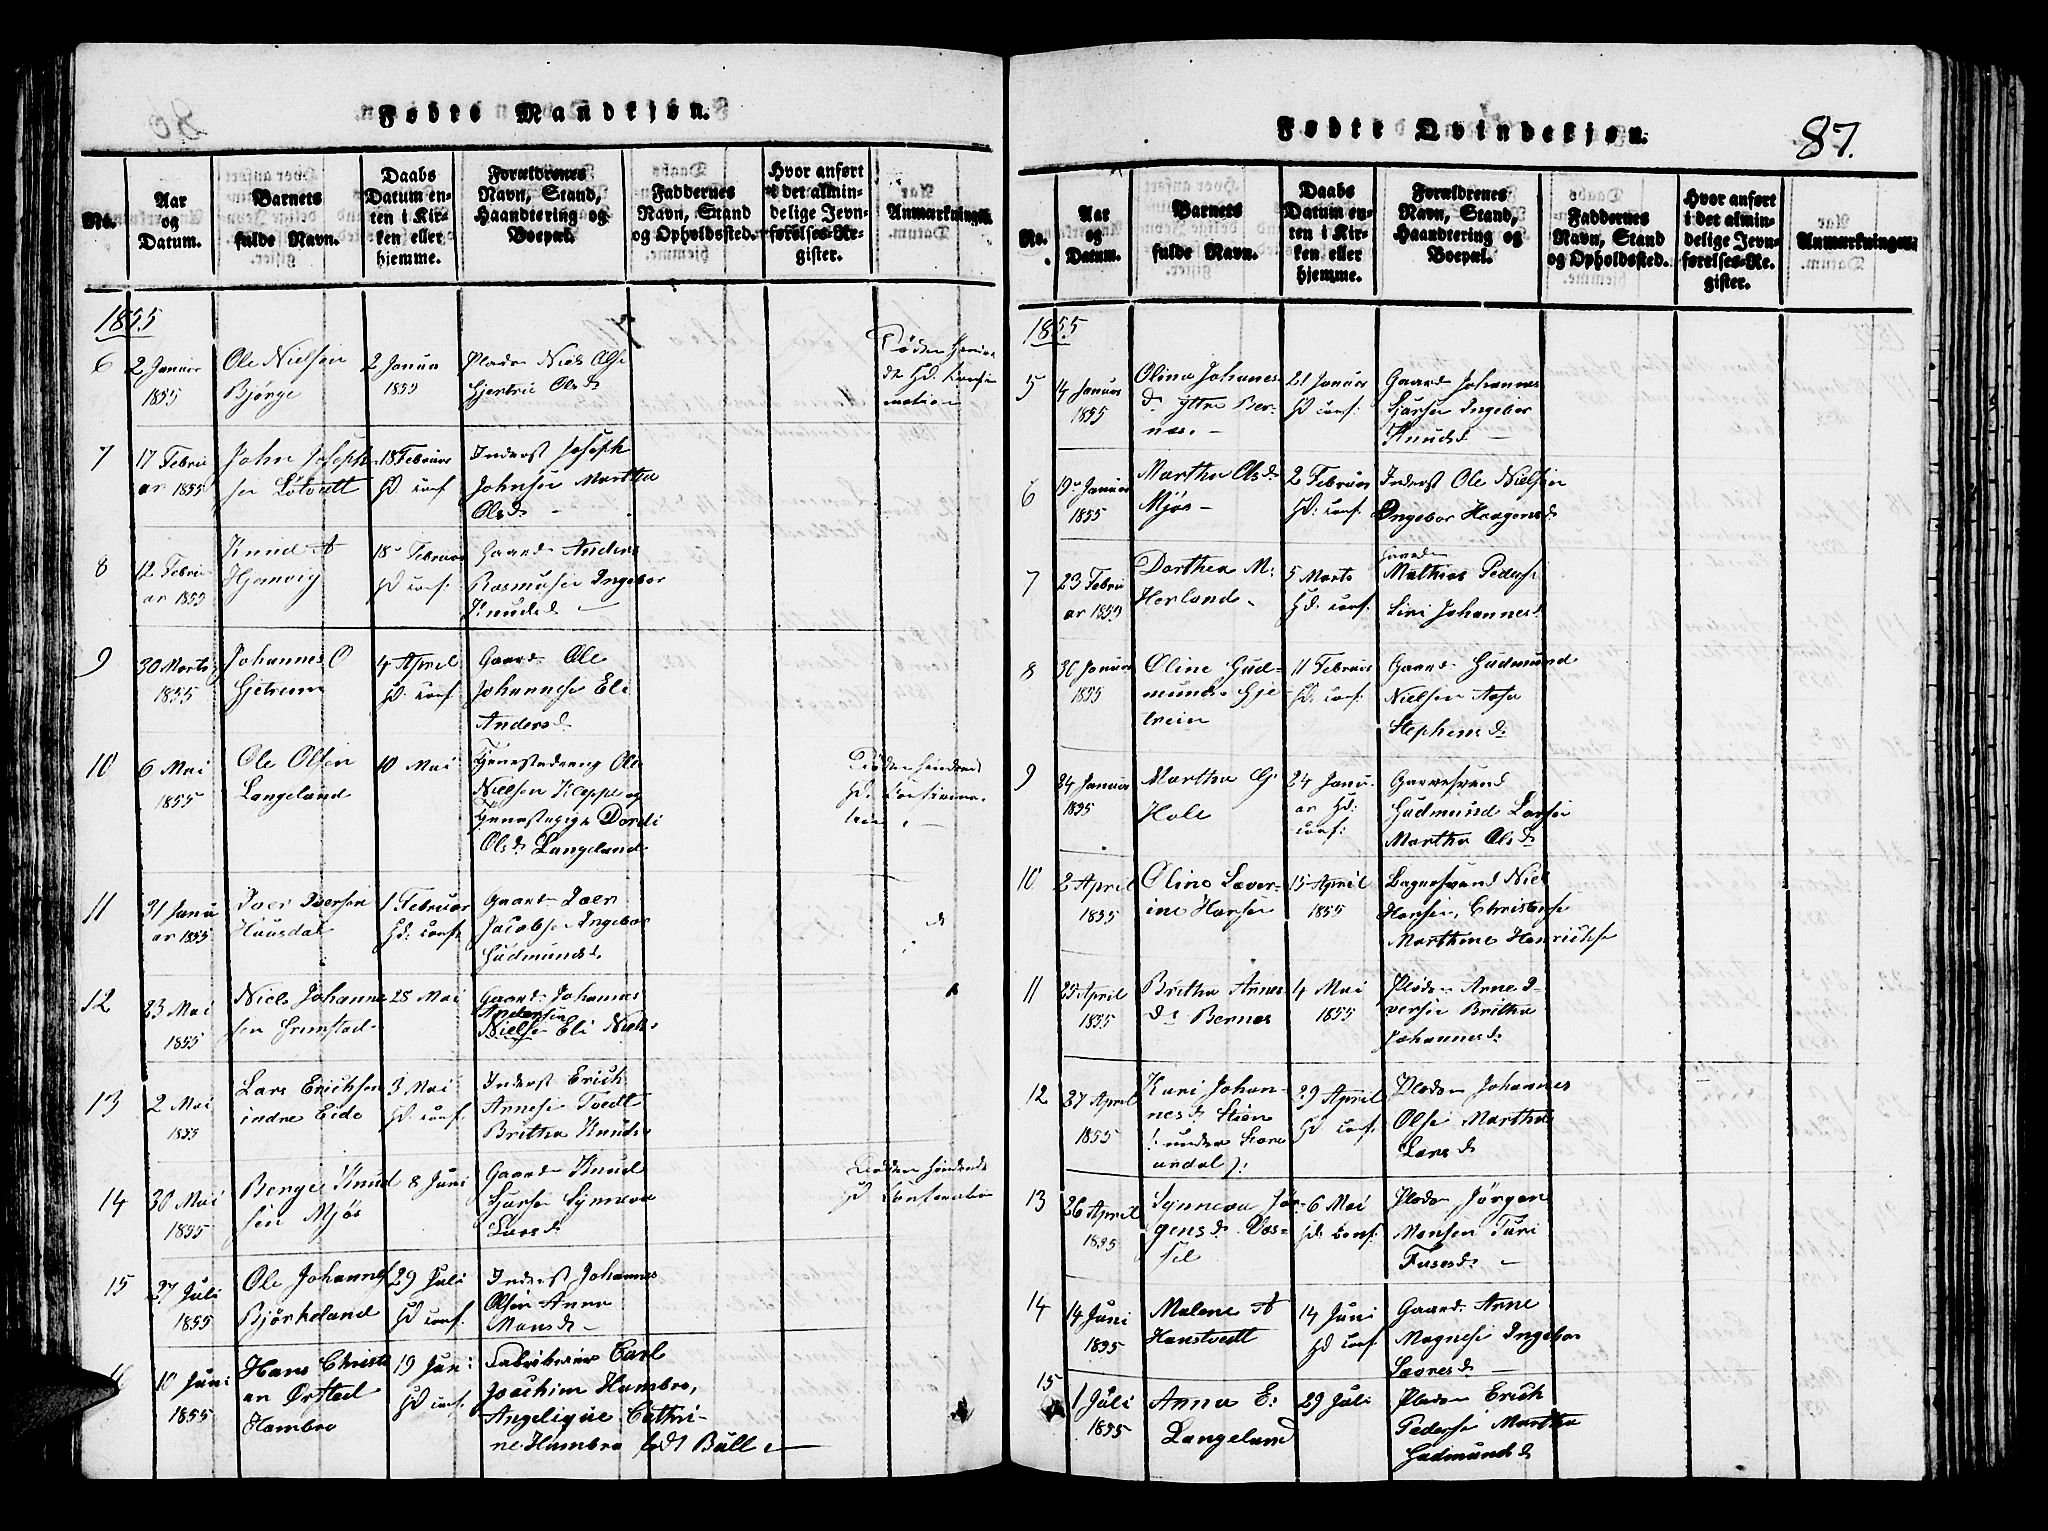 Fødte Mandkjøn.
No.
Aar og Datum.
Barnets fulde Navn.
Daabs Datum enten i Kirken eller hjemme.
Forældrenes Navn, Stand, Haandtering og Boepæl.
Faddernes Navn, Stand og Opholdssted.
Hvor anført i det almindelige Jevnførelses-Register.
Anmærkninger.
1855
6
2 Januar
1855
Ole Nielsen
Bjørge
2 Januar
1855
Pladsm Niels Olse
Gjertrie Olsd
7
17 Febru
ar 1855
John Joseph
sen Løtvedt
18 Februar
Hd: conf:
Inderst Joseph
Johnsen Martha
Olsd -
8
12 Febru
ar 1855
Knud A
Hjemvig
18 Februar
Hd conf:
Gaard Anders
Rasmusen Ingebor
Knudsd -
9
30 Marts
1855
Johannes O
Gjetrem
4 April
Hd: conf:
Gaard Ole
Johannese Eli
Andersd
10
6 Mai
1855
Ole Olsen
Langeland
10 Mai
Tjenestedreng Ole
Nielsen Kleppe og
Tjenestepige Dordi
Olsd Langeland
11
31 Janu
ar 1855
Iver Iversen
Hausdal
1 Februar
Hd: conf:
Gaard Iver
Jacobsen Ingebor
Gudmundsd
12
23 Mai
1855
Niels Johanne
sen Grimstad
28 Mai
Gaard Johannes
Andersen
Nielsen Eli Niels
13
2 Mai
1855
Lars Erichsen
indre Eide
3 Mai
Hd: conf:
Inderst Erich
Arnese Tvedt
Britha Knuds
14
30 Mai
1855
Berge Knud
sen Mjøs
8 Juni
Gaard Knud
Sjursen Synneva
Larsd
15
27 Juli
1855
Ole Johannes
Bjørkeland
29 Juli
Hd conf:
Inderst Johannes
Olsen Anna
Monsd -
16
10 Juni
1855
Hans Christi
an Ørsted
Hambro
19 Juni
Hd conf:
Fabrikeier Carl
Joachim Hambro,
Angelique Cathri-
ne Hambro født Bull
Fødte Qvindekjøn.
87.
No.
Aar og Datum.
Barnets fulde Navn.
Daabs Datum enten i Kirken eller hjemme.
Forældrenes Navn, Stand, Haandtering og Boepæl.
Faddernes Navn, Stand og Opholdssted.
Hvor anført i det almindelige Jevnførelses-Register.
Anmærkninger.
1855
5
14 Januar
1855
Olina Johannes
d. ytre Ber-
nes. -
21 Januar
Hd conf:
Gaard Johannes
Sjursen Ingebor
Knudsd -
6
19 Januar
1855
Martha Olsd
Mjøs -
2 Februar
Hd: conf:
Inderst Ole Nielsen
Ingebor Haagensd
7
23 Febru
ar 1855
Dorthea M:
Herland.
5 Marts
Hd: conf:
Gaard
Mathias Pederse
Siri Johannesd
8
30 Januar
1855
Oline Gud-
munds. Gje
trein
11 Februar
Hd: conf:
Gaard Gudmund
Nielsen Aasa
Stephensd
9
24 Januar
1855
Martha G
Hole
24 Janu-
ar Hd:
conf:
Gudmund Larsen
Martha Olsd
10
2 April
1855
Oline Sever-
ine Hansen
15 April
1855
Niel
Hansen, Christense
Marthine Henrichse
11
25 April
1855
Britha Arnes
d: Bernes
4 Mai
1855
Pladsm Arne I-
versen Britha
Johannesd
12
27 April
1855
Kari Johan-
nesd Steen
(: under Sæve
raasdal):
29 April
Hd conf:
Pladsm Johannes
Olse Martha
Larsd
13
26 April
1855
Synneva Jør-
gensd. Vas-
sel
6 Mai
Hd: conf:
Pladsm Jørgen
Monsen Turi
Fusesd -
14
14 Juni
1855
Malene A
Hanstvedt
14 Juni
Hd conf
Gaard Arne
Magnese Ingebor
15
1 Juli
1855
Anna E:
Langeland
29 Juli
Pladsm Erich
Pederse Martha
Gudmundsd